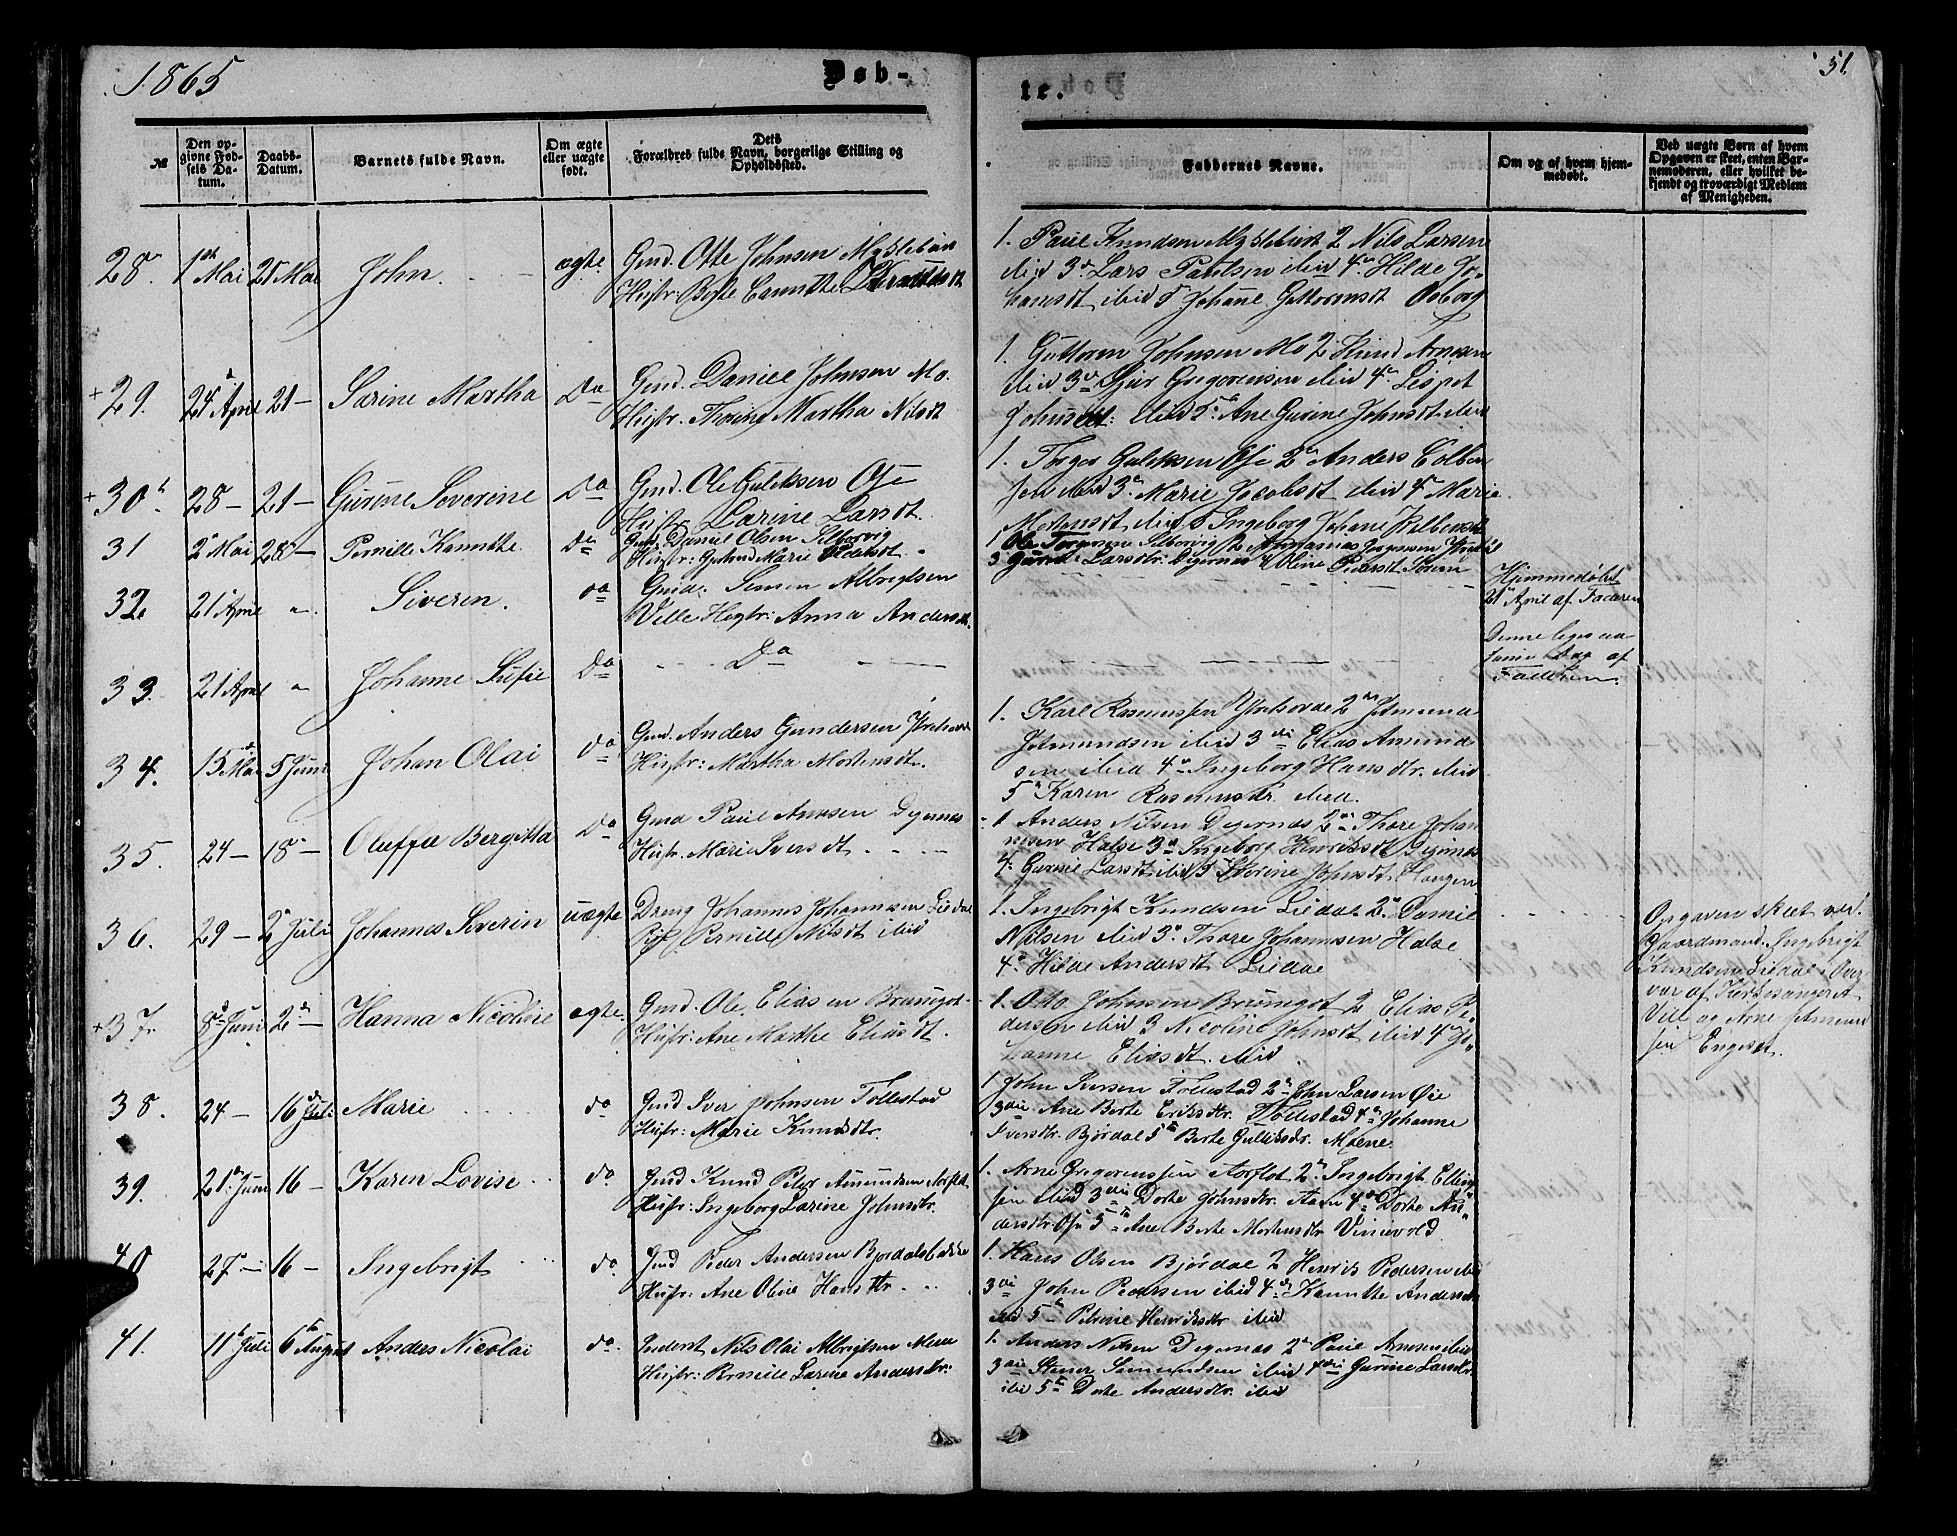 1865
Døb-
te.
51.
№
Den op-
givne Fød-
sels Da-
tum.
Daabs-
Datum.
Barnets fulde Navn.
Om ægte
eller uægte
født.
Dets
Forældres fulde Navn, borgerlige Stilling og
Opholdssted.
Faddernes Navne.
Om og af hvem hjem-
medøbt.
Ved uægte Børn af hvem
Opgaven er skeet, enten Bar-
nemoderen, eller hvilket be-
kjendt og troværdigt Medlem
af Menigheden.
28. 1ste Mai 21 Mai John. ægte.
Gmd. Otte Johnsen Myklebust
Hustr: Berte
1. Paul Knudsen Myklebust 2 Nils Larsen
ibid 3. Lars Paulsen ibid 4. Hilde Jo-
hansdt ibid 5 Johane Guttormsdt Aaborg
+ 29. 24 April 21 — Sarine Martha Do
Gmd. Daniel Johnsen Mo.
Hustr. Martha Nilsdt
1. Guttorm Johnsen Mo 2 Knud Arnesen
ibid 3. Gregoriusen ibid 4. Lispet
ibid 5. Ane Gurine Johnsdt ibid
+ 30. 28 — 21 — Gurine Severine Do
Gmd. Ole Guleksen Ose
Hustr. Larine Larsdt.
1. Torger Guleksen Ose 2 Anders Colben
sen ibid 3. Marie Jacobsdt ibid 4 Marie
Mortensdt ibid 5 Ingeborg Johane
31 2 Mai 28 — Pernille Do
Gmd. Daniel Olsen
Hustr: Marie Pedersdt
1 Ole Torgersen
3 Larsdtr: Digernes 4 Oline Pedersdt
32. 21 April Siverin. Do
Gmd. Simon Albrigtsen
Ville Hustr: Anna Andersdt.
Hjemmedøbt
21 April af Faderen
33. 21 April Johanne Sofie Do
Do
Denne ligesaa
samme Dag af
Faderen.
34. 15 Mai 5 Juni Johan Olai Do
Gmd. Anders Gundersen
Hustr: Martha Mortensdtr.
1. Karl Rasmussen 2
ibid 3die Elias Amund
sen ibid 4. Ingeborg Hansdtr. ibid
5 Karen Rasmusdtr. ibid.
35. 24 — 18 — Oluffa Bergitta Do
Gmd Paul Arnesen Digernes
Hustr. Marie Iversdt
1 Anders Nilsen Digernes 2 Thore Johan
nesen Halse 3 Ingeborg Henriksdt Digernes
4. Gurine Larsdt ibid 5 Johnsdt. Haugen
36. 29 — 2 Juli Johannes Severin uægte
Dreng Johannes Johannesen Liedal
Pige Pernille Nilsdt ibid
1. Ingebrigt Knudsen Liedal 2. Daniel
Nilsen ibid 3. Thore Johannesen Halse
4. Hilde Andersdt. Liedal
Opgaven skeet ved
Gaardmand Ingebrigt
Knudsen Liedal. Over
var af Kirkesanger A
Ville og Arne Amund
sen Engeset.
+ 37. 8 Juni 2 — Hanna Nicoline ægte.
Gmd. Ole Eliasen
Hustr: Ane Marthe Eliasdt.
1. Otto Johnsen 2 Elias Pe-
dersen ibid 3 Nicoline Johnsdt ibid 4 Jo-
hanne Eliasdt. ibid.
38. 24 — 16 Juli: Marie do
Gmd Iver Johnsen Follestad
Hustr: Marie Knudsdtr.
1 John Iversen Follestad 2. John Larsen Øie
3die Ane Berte Eriksdtr. Follestad 4. Johanne
Iversdtr. Bjørdal 5te Berte Gulliksdr. Moene.
39. 21 Juni 16 — Karen Lovise do
Gmd Knud Peter Amundsen
Hustr: Ingeborg Larine Johnsdtr.
1. Arne Gregoriussen Aarflot 2. Ingebrigt Elling
sen ibid 3die Dorte Johnsdtr. Aam 4. Dorte An-
dersdtr. Ose 5te Ane Berte Mortensdtr Vinievold
40 27 — 16 — Ingebrigt do.
Gmd Peder Andersen Bjørdalsbakke
Hustr: Ane Oline Hansdtr.
1. Hans Olsen Bjørdal 2 Henrik Pedersen ibid
3die John Pedersen ibid 4 Andersdtr
ibid 5te Petrine Henriksdtr ibid
41. 11 Juli 6te August Anders Nicolai do.
Inderst Nils Olai Albrigtsen Moene
Hustr: Pernille Larine Andersdtr:
1. Anders Nilsen Digernes 2 Paul Arnesen ibid
3die Stener Samundsen ibid 4 Gurine Larsdtr
ibid 5te Dorte Andersdtr. ibid